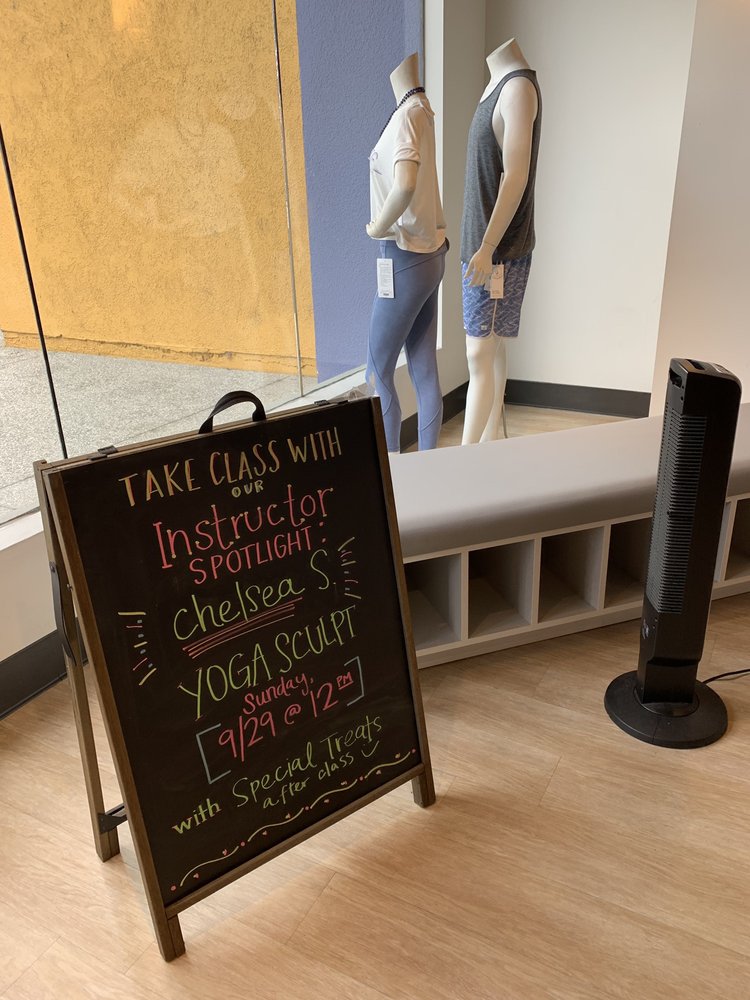 TAKE CLASS WITH
OUR
Instructor
SPOTLIGHT:
Chelsea S.
YOGA SCULPT
Sunday,
9/29 @ 12 PM
with Special Treats
after class